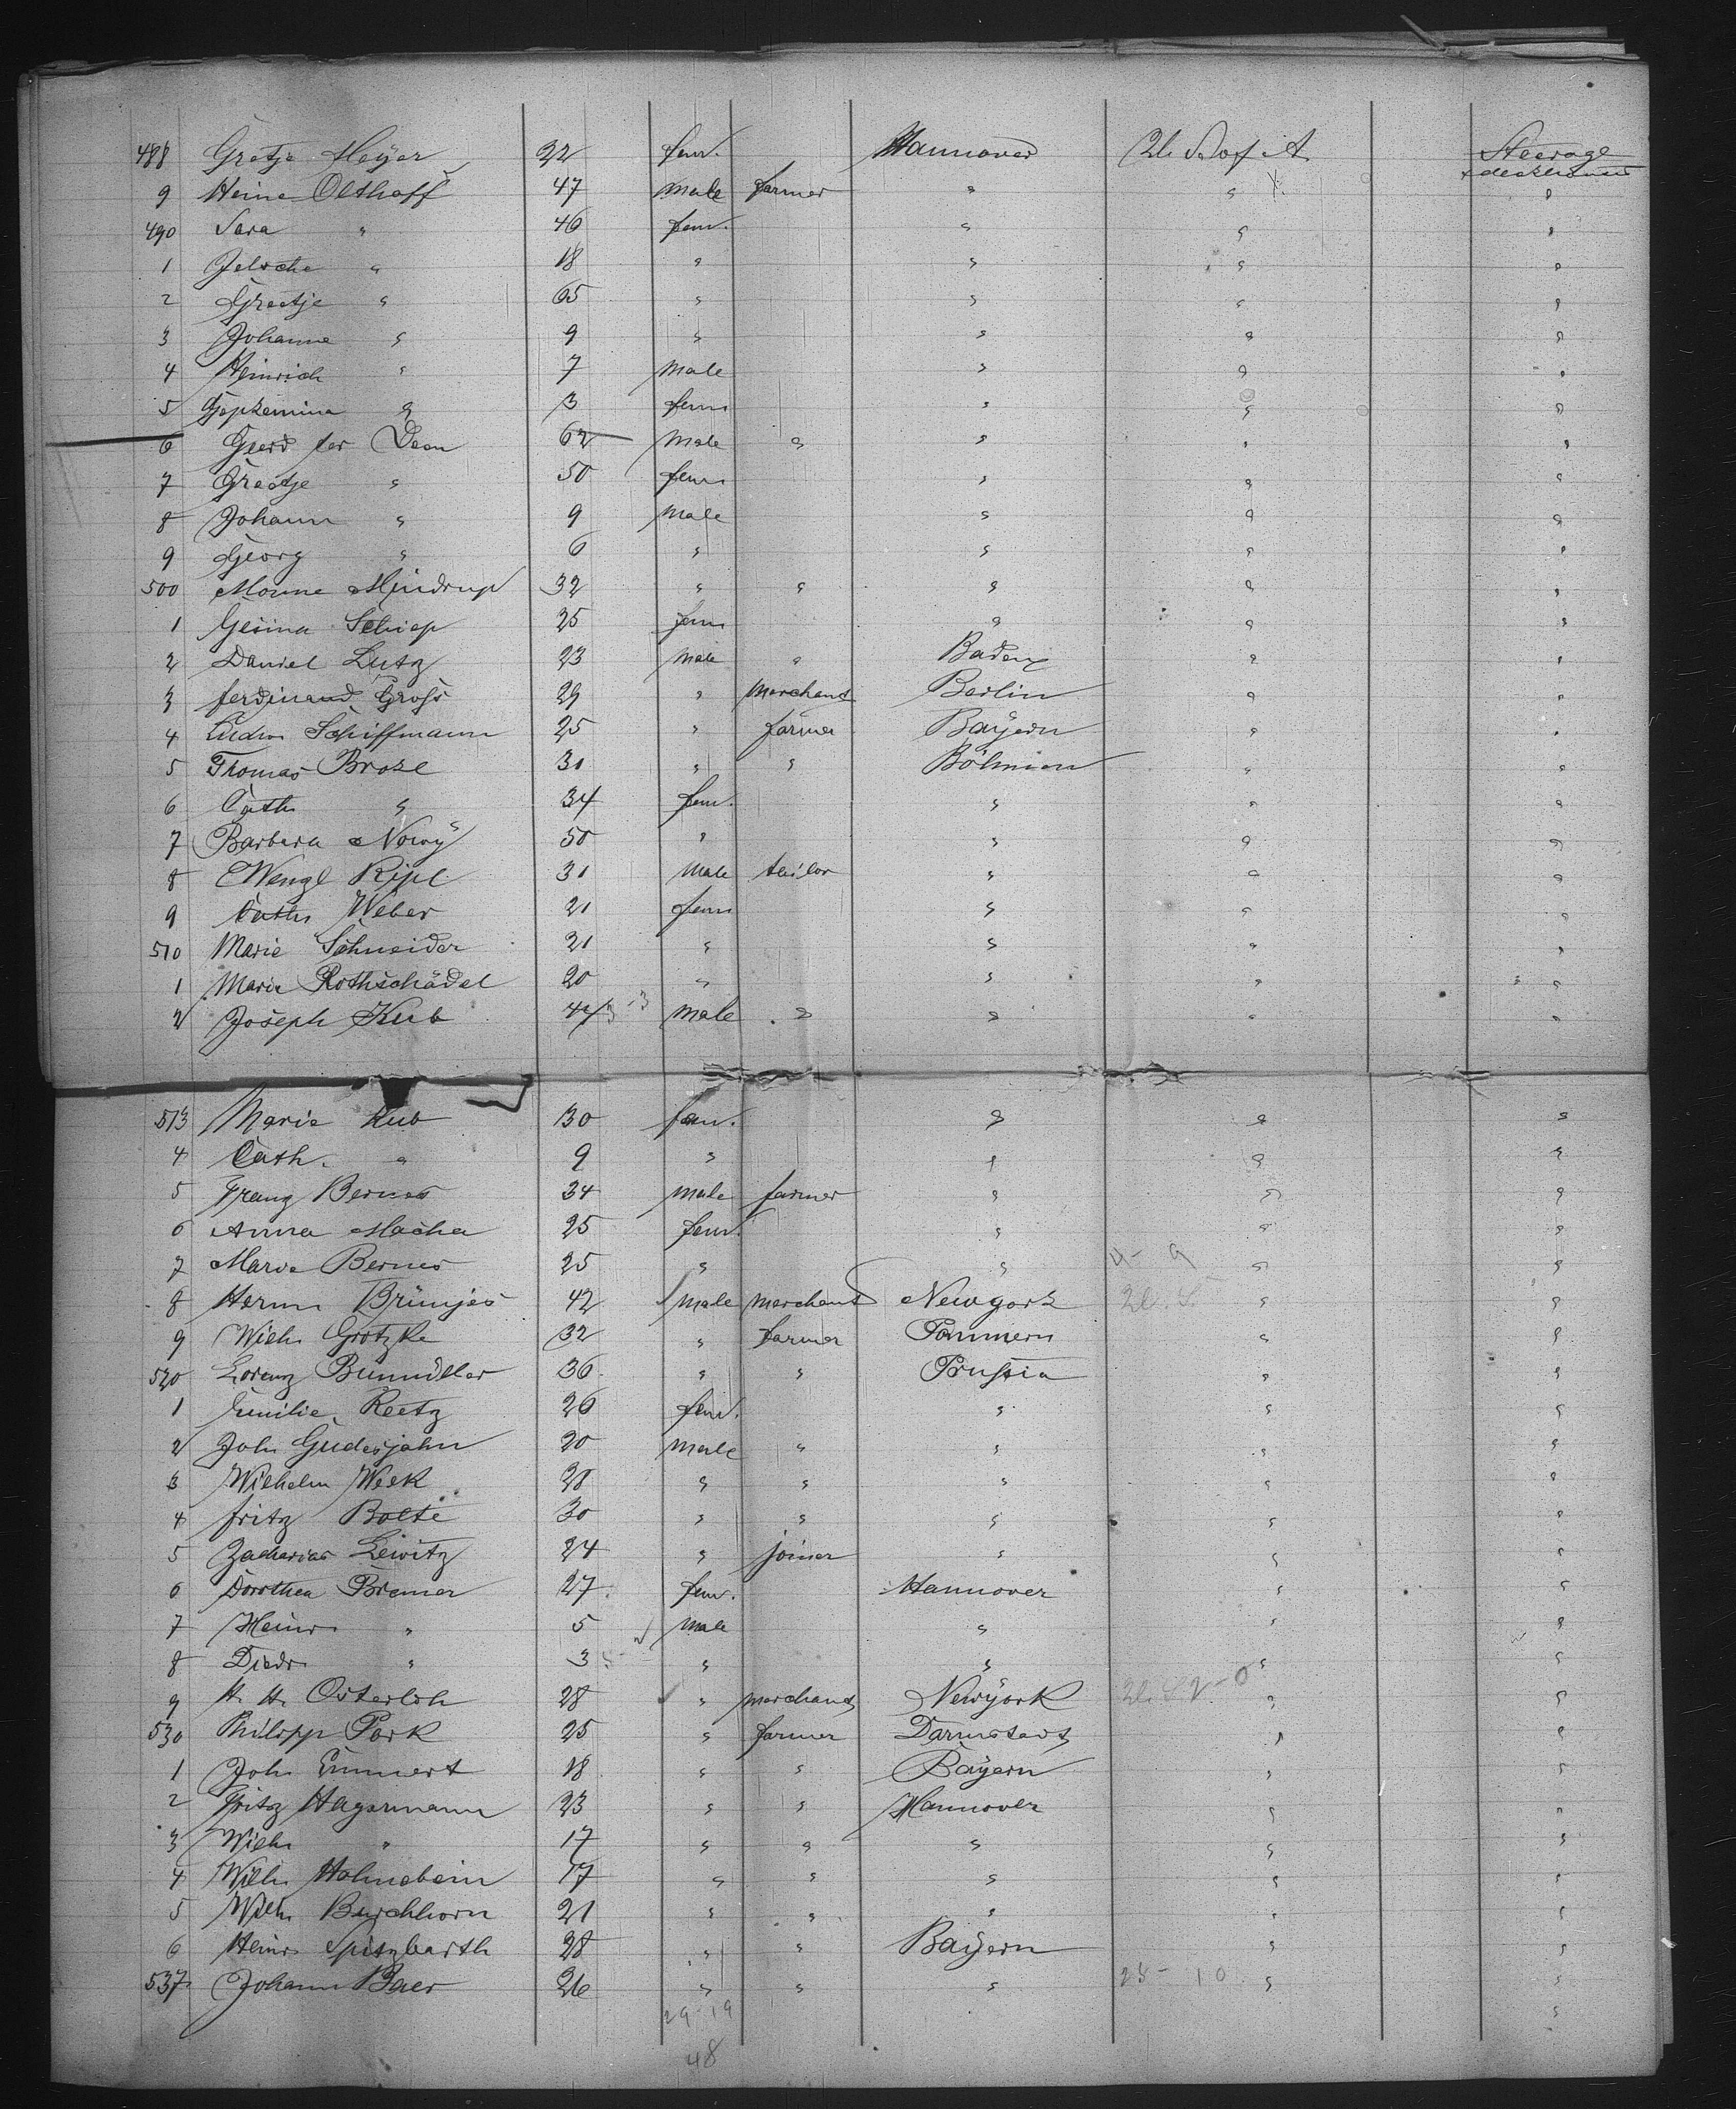 488 Gretje Heyer 22 fem. Hannover U. S. of A. Steerage
deckhouse
9 Heine Olthoff 47 male farmer " " "
490 Sara " 46 fem. " " "
1 Jelsche " 18 " " " "
2 Greetje " 65 " " " "
3 Johanne " 9 " " " "
4 Heinrich " 7 male " " "
5 " 3 fem " " "
6 Geerd ter Veen 62 male " " " "
7 Greetje " 50 fem " " "
8 Johann " 9 male " " "
9 Georg " 6 " " " "
500 Mindrup 32 " " " " "
1 Gesina Schiep 25 fem " " "
2 Daniel Lutz 23 male " Baden " "
3 ferdinand Groß 29 " merchant Berlin " "
4 Ludw Schiffmann 25 " farmer Bayern " "
5 Thomas Broze 31 " " Böhmen " "
6 Cath " 34 fem. " " "
7 Barbara Nowy 50 " " " "
8 Wenzl Ripl 31 male tailor " " "
9 Cath Weber 21 fem " " "
510 Marie Schneider 21 " " " "
1 Marie Rothschädel 20 " " " "
2 Joseph Kub 44 male " " " "
513 Marie Kub 30 fem. " " "
4 Cath. " 9 " " " "
5 Franz Bernes 34 male farmer " " "
6 Anna Macha 25 fem. " " "
7 Marie Bernes 25 " " " "
8 Herm Brünjes 42 male merchant Newyork " "
9 Wilh Grotzke 32 " farmer Pommern " "
520 Lorenz Bumüller 36 " " Prußia " "
1 Emilie Reetz 26 fem. " " "
2 Joh Gudesjahn 20 male " " " "
3 Wilhelm Week 28 " " " " "
4 fritz Bolte 30 " " " " "
5 Zacharias Lewitz 24 " joiner " " "
6 Dorothea Bremer 27 fem. Hannover " "
7 Heinr " 5 male " " "
8 Diedr " 3 " " " "
9 H. H. Osterloh 28 " merchant Newyork " "
530 Philipp Park 25 " farmer Darmstadt " "
1 Joh Emmert 18 " " Bayern " "
2 Fritz Hagermann 23 " " Hannover " "
3 Wilh " 17 " " " " "
4 Wilh Hohnebein 17 " " " " "
5 Wilh Buschhorn 21 " " " " "
6 Heinr Spitzbarth 28 " " Bayern " "
537 Johann Baer 26 " " " " "
29-19
48